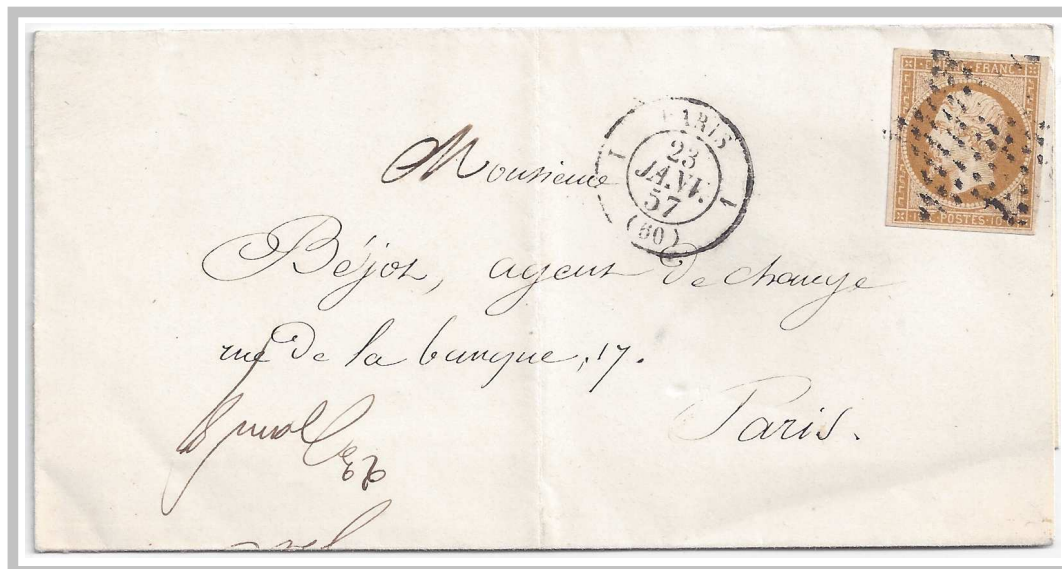 FRANC
POSTES 10
PARIS
1 1
23
JANV.
57
(60)
Monsieur
Béjot, agent de change
rue de la banque, 17.
Paris.